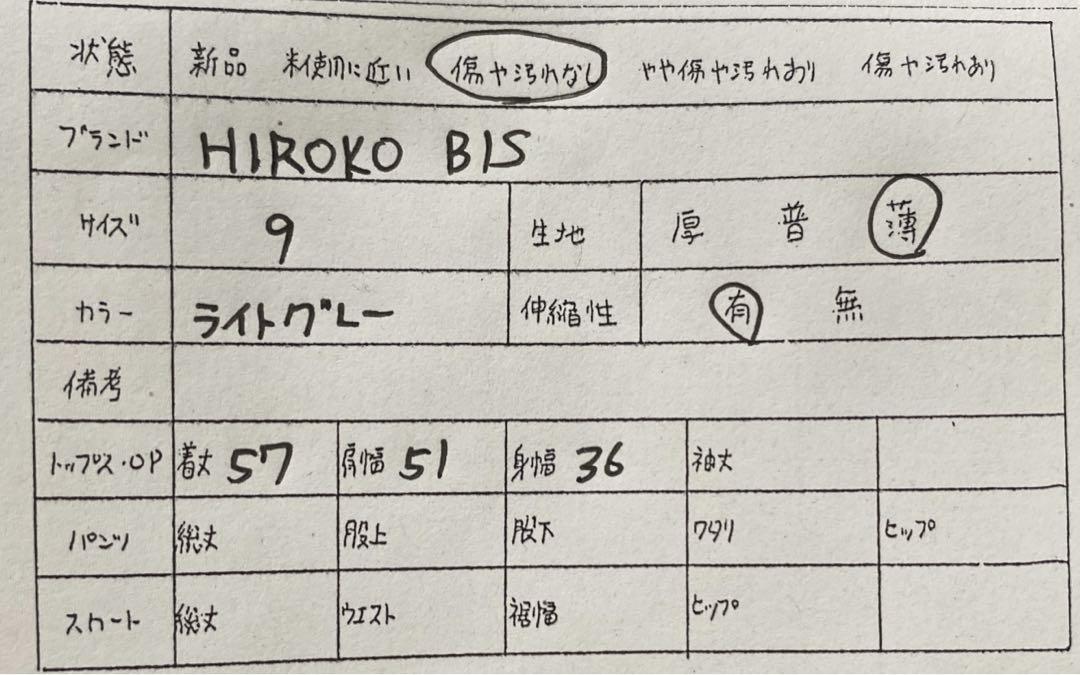 状態 新品 未使用に近い 傷や汚れなし やや傷や汚れあり 傷や汚れあり
ブランド HIROKO BIS
サイズ 9 生地 厚 普 薄
カラー ライトグレー 伸縮性 有 無
備考
トップス・OP 着丈 57 肩幅 51 身幅 36 袖丈
パンツ 総丈 股上 股下 ワタリ ヒップ
スカート 総丈 ウエスト 裾幅 ヒップ